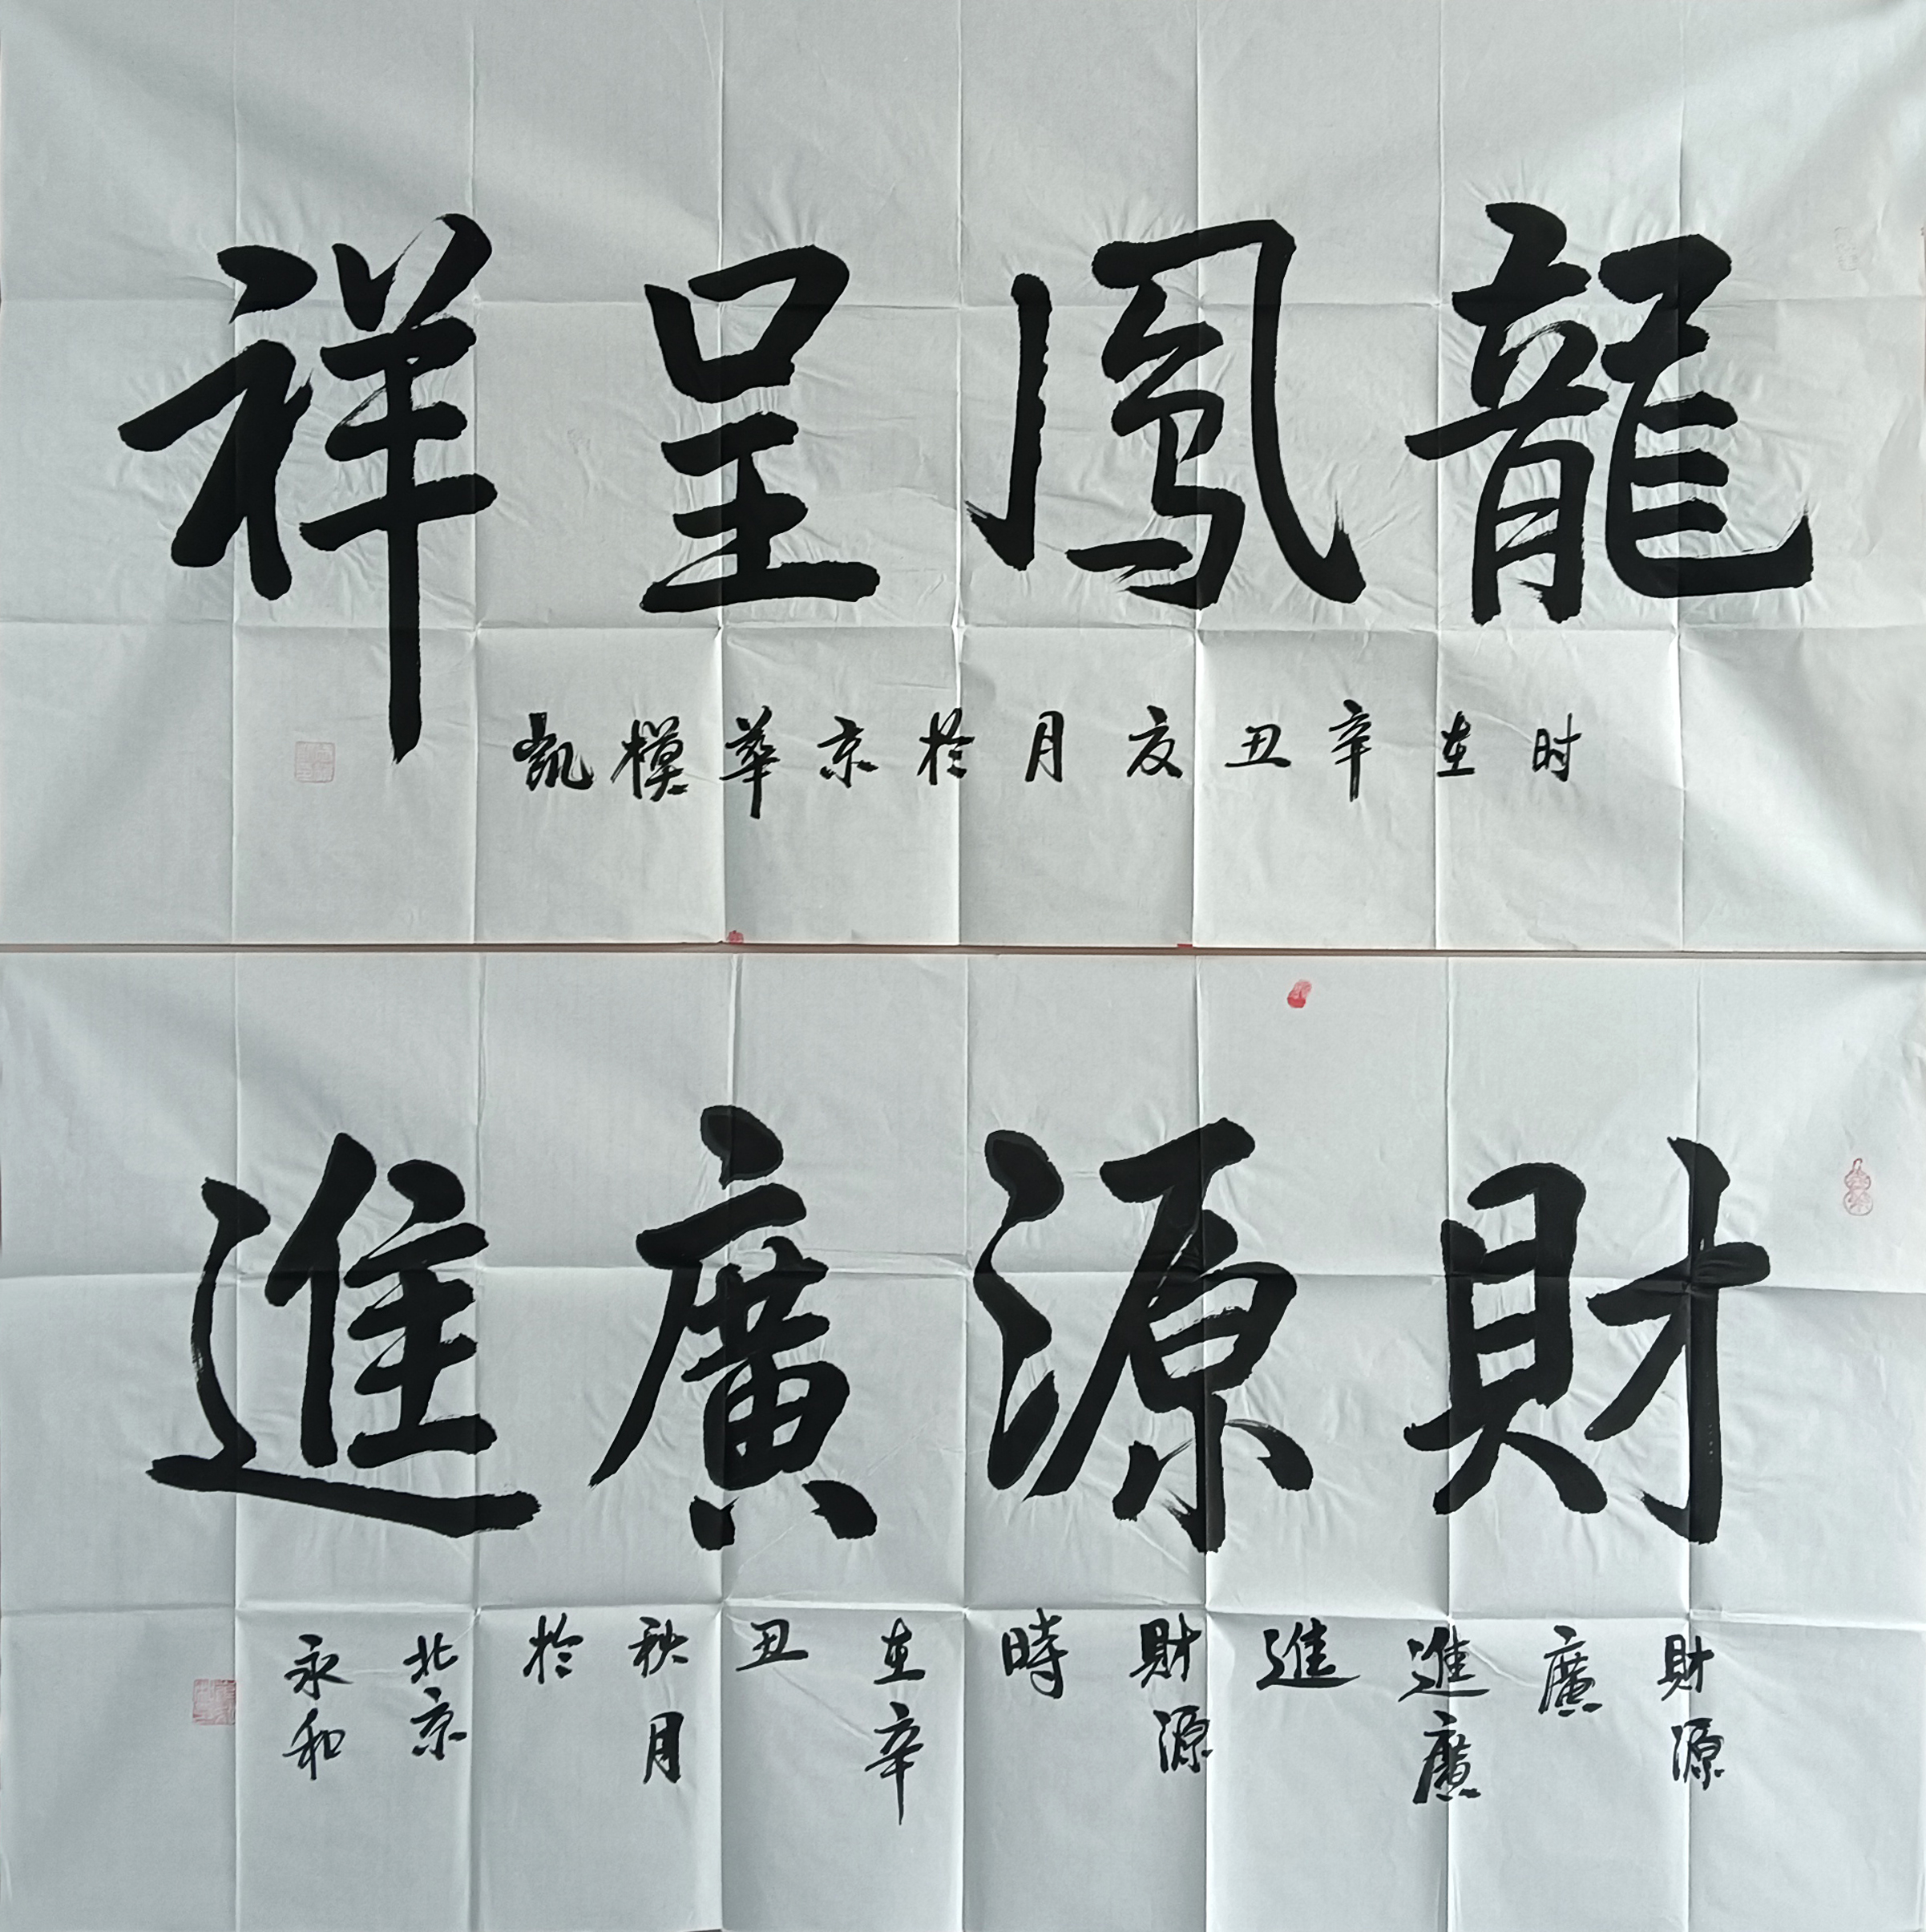 龍鳳呈祥
时在辛丑友月於京華模凱
財源廣進
財源
廣
進廣
進
財源
時
在辛
丑
秋月
於
北京
永和